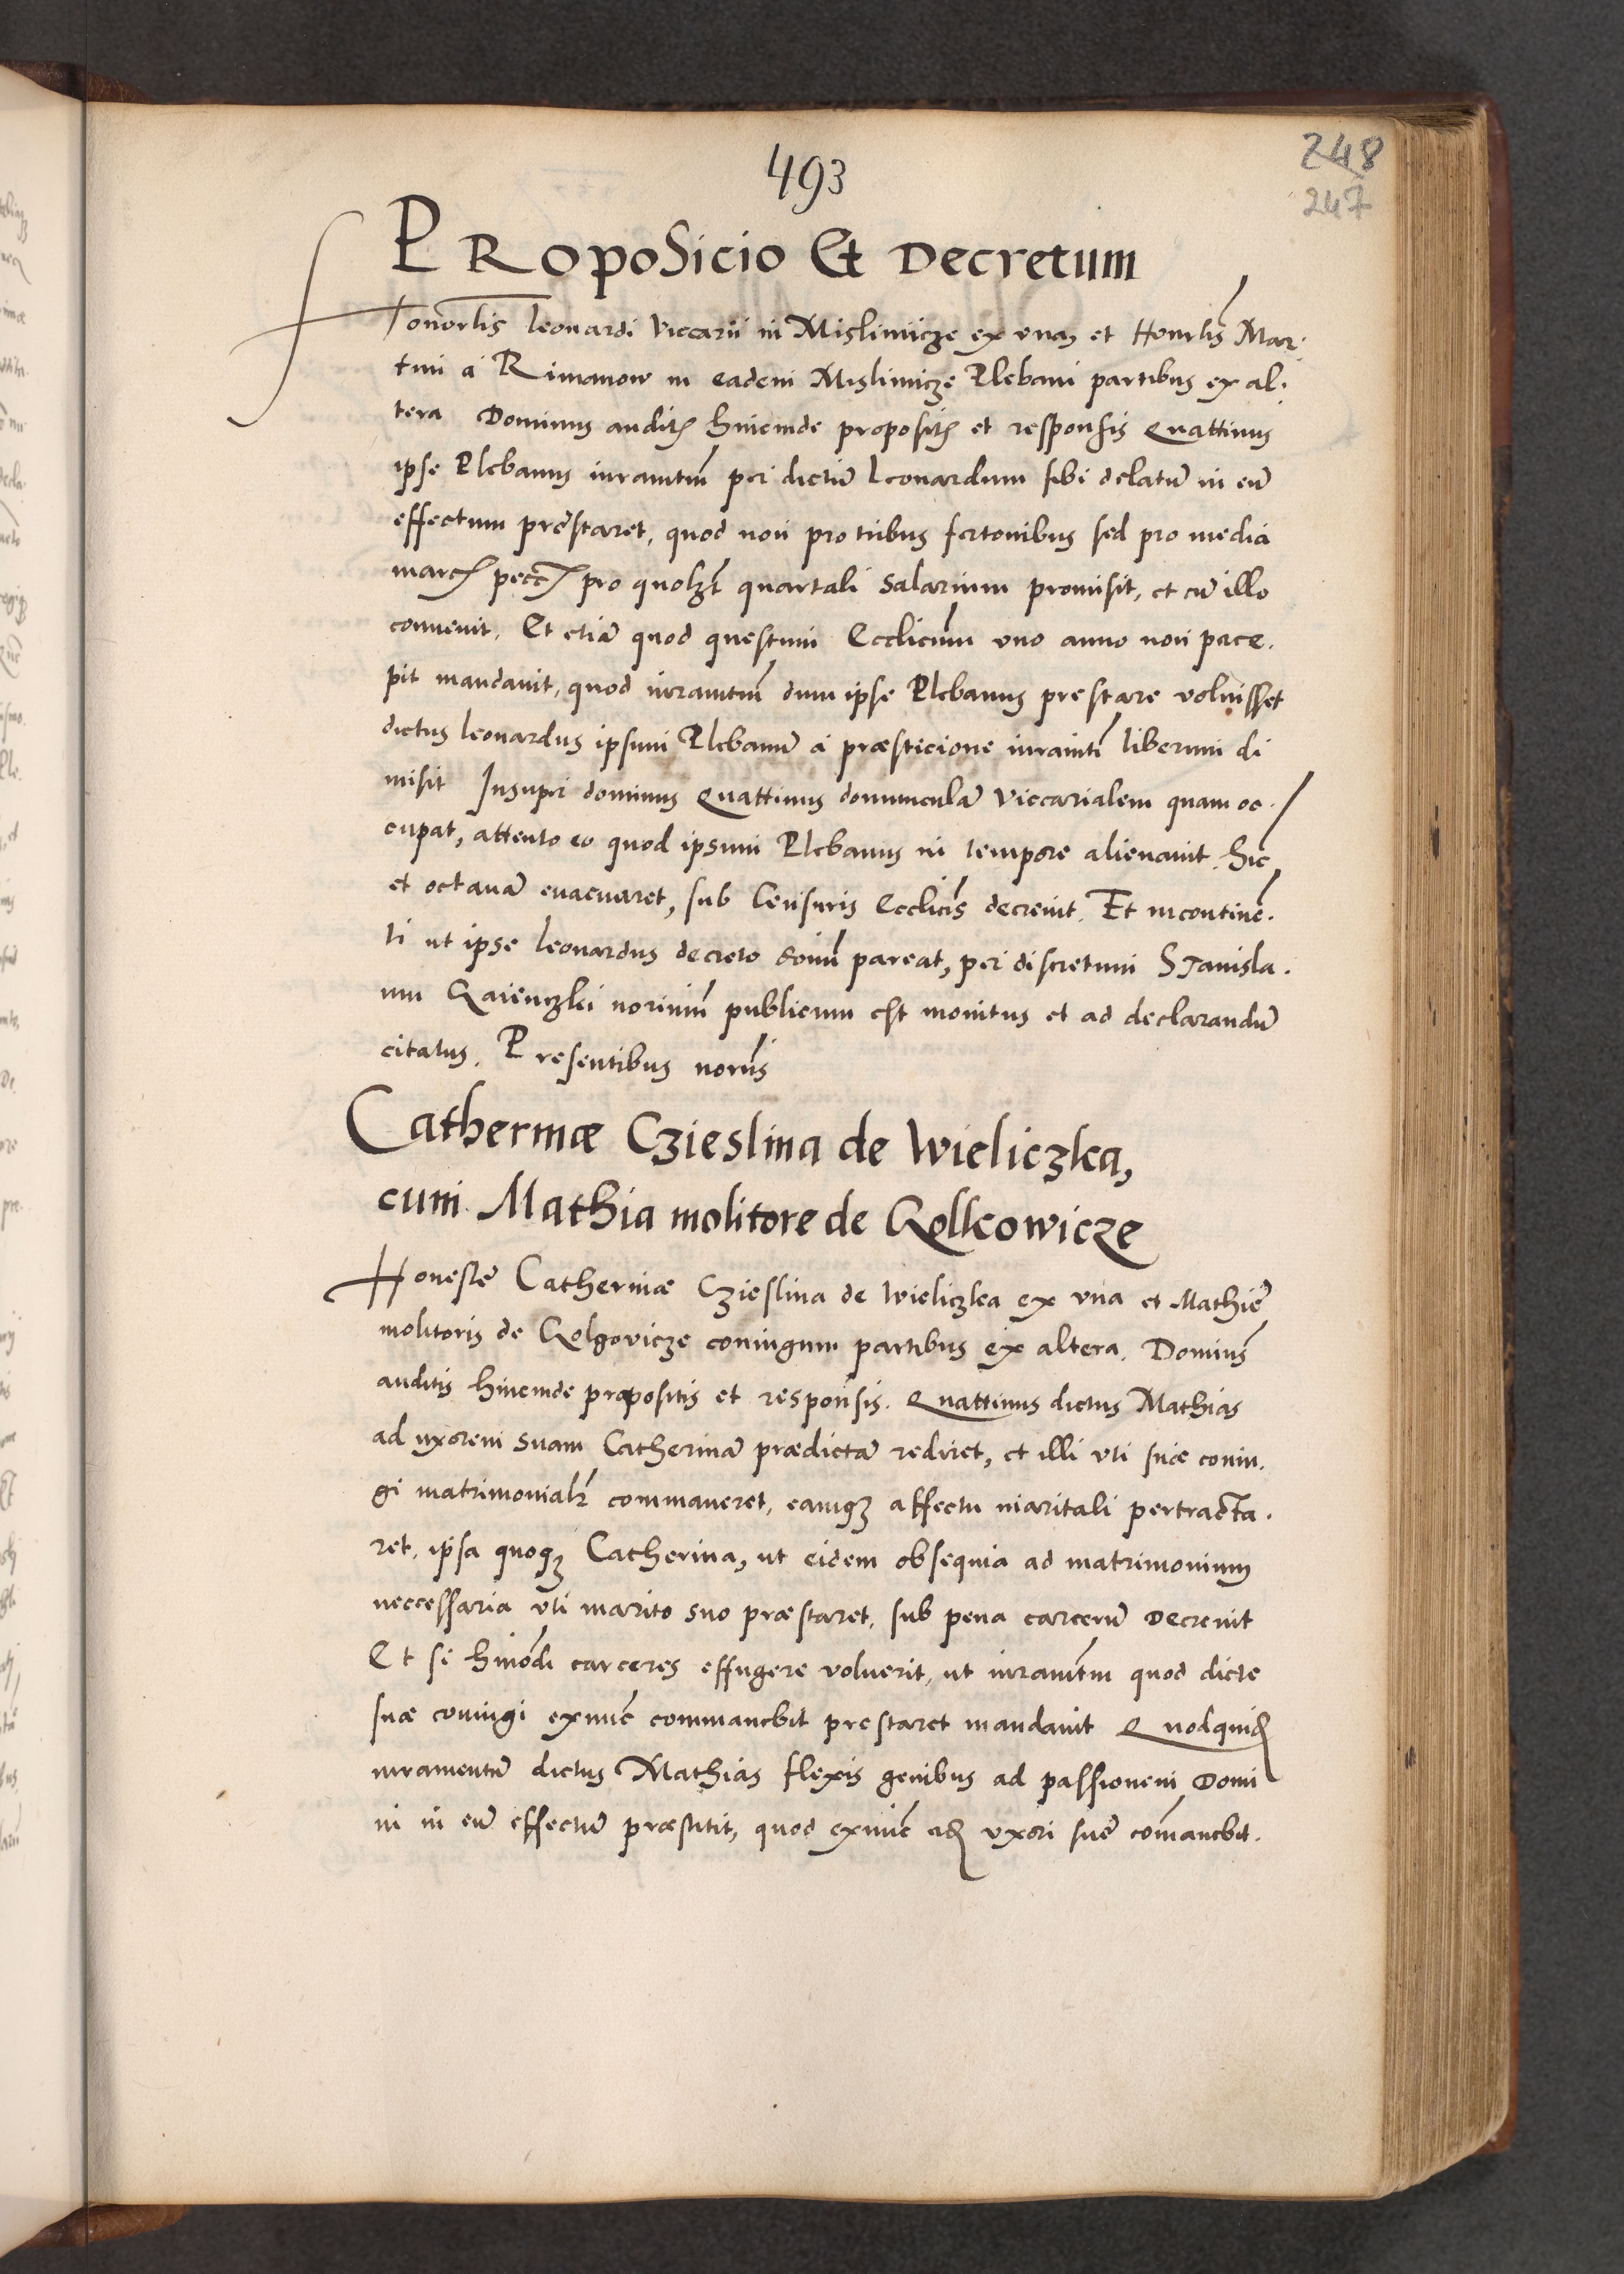 493
248
247
PRoposicio Et Decretum
Honorlis leonardi Viccarii in Mislimicze ex vna, et Honorlis Mar.
tini a Rimanow in eadem Mislimicze Plebani partibus ex al.
tera Dominus audits hincinde propositis et responsis Quattinus
ipse Plebanus iuramtum per dictum Leonardum sibi delatum in eum
effectum prestaret, quod non pro tribus fertonibus sed pro media
marca pecc pro quolzt quartali Salarium promisit, et cum illo
convenit. Et etiam quod questum Ecclicum uno anno non perce.
pit mandavit, quod iuramtum dum ipse Plebanus prestare voluisset
dictus leonardus ipsum Plebanum a præsticione iuramti liberum di
misit Insuper dominus Quattinus domunculam Viccarialem quam oc.
cupat, attento eo quod ipsum Plebanus in tempore alienavit hic
et octavam evacuaret, sub Censuris Ecclicis decrevit. Et incontinen.
ti ut ipse leonardus decreto domini pareat, per discretum Stanisla.
um notarium publicum est monitus et ad declarandum
citatus. Presentibus notriis
Catherinæ Czieslina de Wieliczka,
cum Mathia molitore de Golkowicze
Honeste Catherinæ Czieslina de Wieliczka ex vna et Mathie
molitoris de Golgovicze coniugum partibus ex altera. Dominus
auditis hincinde propositis et responsis. Quattinus dictus Mathias
ad uxorem suam Catherinam prædictam rediret, et illi vti suæ coniu.
gi matrimonialr commaneret, eamqz affectu maritali pertracta.
ret, ipsa quoqz Catherina, ut eidem obsequia ad matrimonium
neccessaria vti marito suo præstaret, sub pena carcerum Decrevit
Et si hmodi carceres effugere voluerit, ut iuramtum quod dicte
suæ coniugi exnunc commanebit prestaret mandavit Quodquid
iuramentum dictus Mathias flexis genibus ad passionem Domi
ni in eum effectum præstitit, quod exnunc ead uxori sue comanebit.